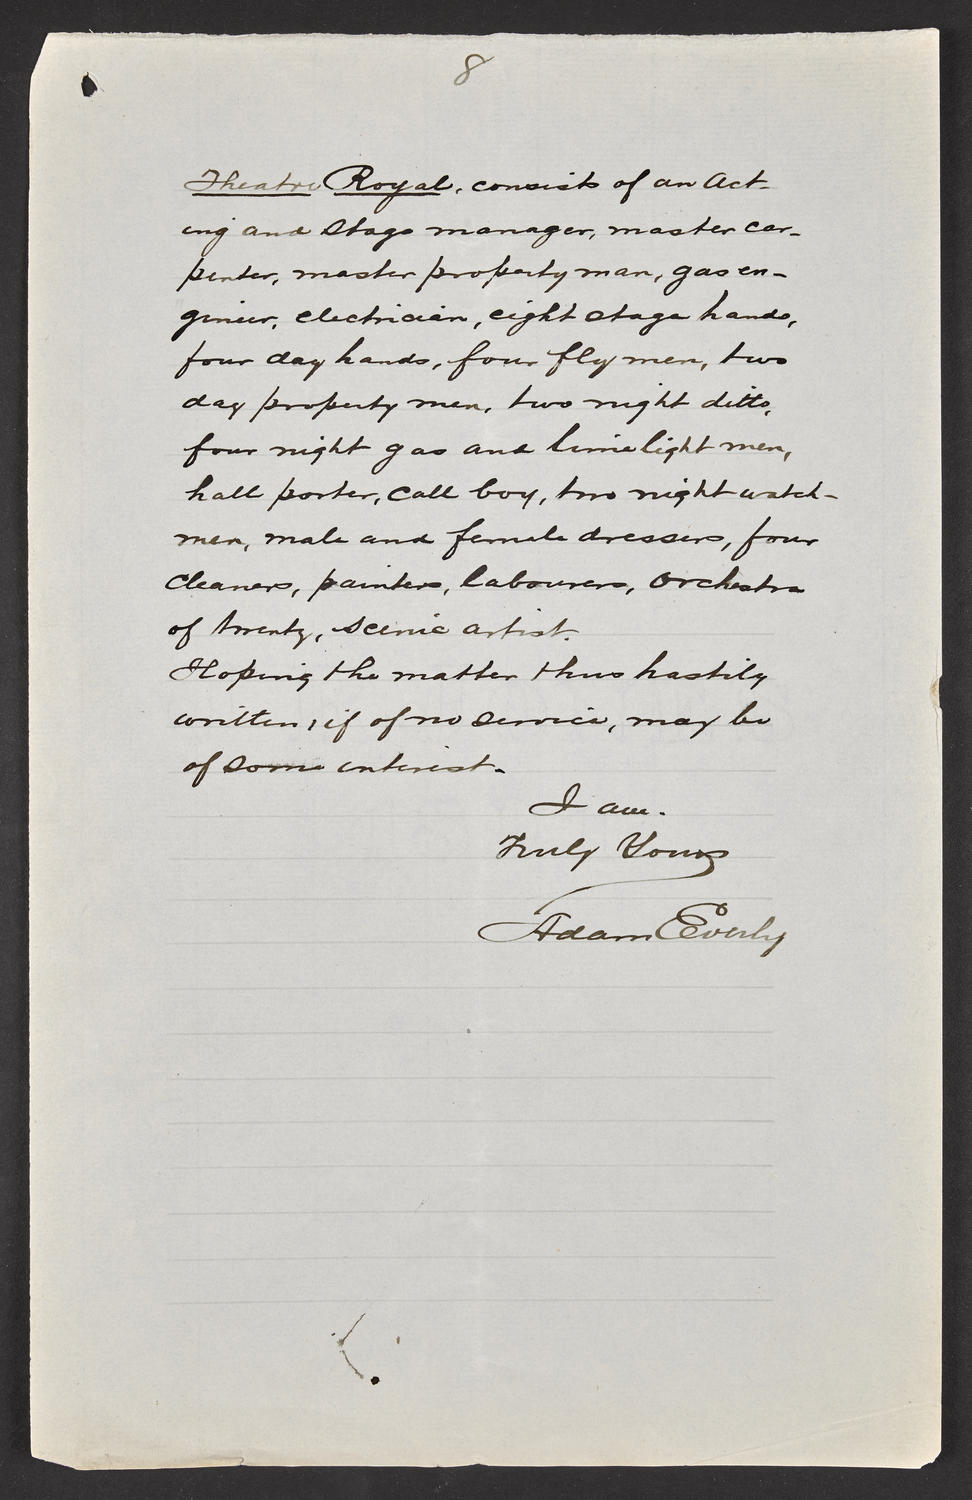 8
Theatre Royal, consists of an Act-
ing and Stage manager, master car-
penter, master property man, gas en-
gineer, electrician, eight stage hands,
four day hands, four fly men, two
day property men, two night ditto,
four night gas and lime light men,
hall porter, call boy, two night watch-
men, male and female dressers, four
cleaners, painters, labourers, orchestra
of twenty, scenic artist.
Hoping the matter thus hastily
written, if of no service, may be
of some interest.
I am.
Truly Yours
Adam Everly